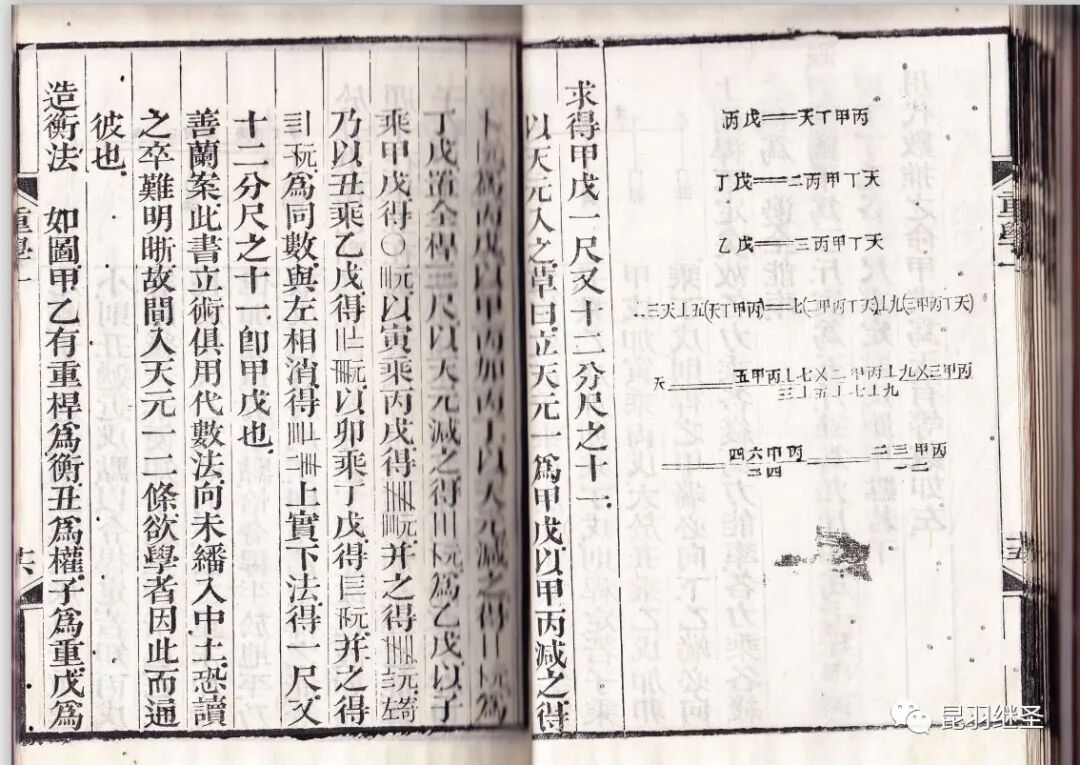 重學一
十五
丙戊══天丅甲丙
丁戊══二丙甲丅天
乙戊══三丙甲丅天
三天丄五(天丅甲丙)══七(二甲丙丅天)丄九(三甲丙丅天)
天══五甲丙丄七乂二甲丙丄九乂三甲丙
三丄五丄七丄九
══四六甲丙══二三甲丙
二四 一二
求得甲戊一尺又十二分尺之十一
以天元入之草曰立天元一爲甲戊以甲丙減之得
爲丙戊以甲丙加丙丁以天元減之得 爲
丁戊置全桿三尺以天元減之得 爲乙戊以子
乘甲戊得 以寅乘丙戊得 并之得 左寄
乃以丑乘乙戊得 以卯乘丁戊得 并之得
爲同數與左相消得 上實下法得一尺又
十二分尺之十一即甲戊也
善蘭案此書立術俱用代數法向未繙入中土恐讀
之卒難明晰故間入天元一二條欲學者因此而通
彼也
造衡法 如圖甲乙有重桿爲衡丑爲權子爲重戊爲
重學一
十六
昆羽继圣